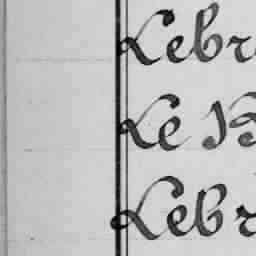 Lebr
Le B
Lebr